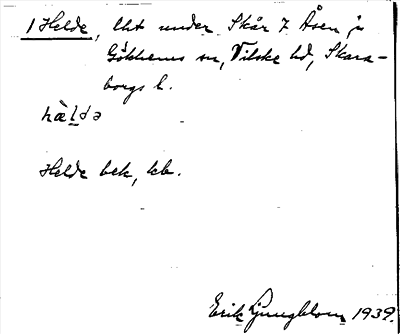 1 Helde, lht under Skår 7 Åsen i
Gökhems sn, Vilske hd, Skara-
borgs l.
hæ̀ldə
Helde bek, kb.
Erik Ljungblom 1939.